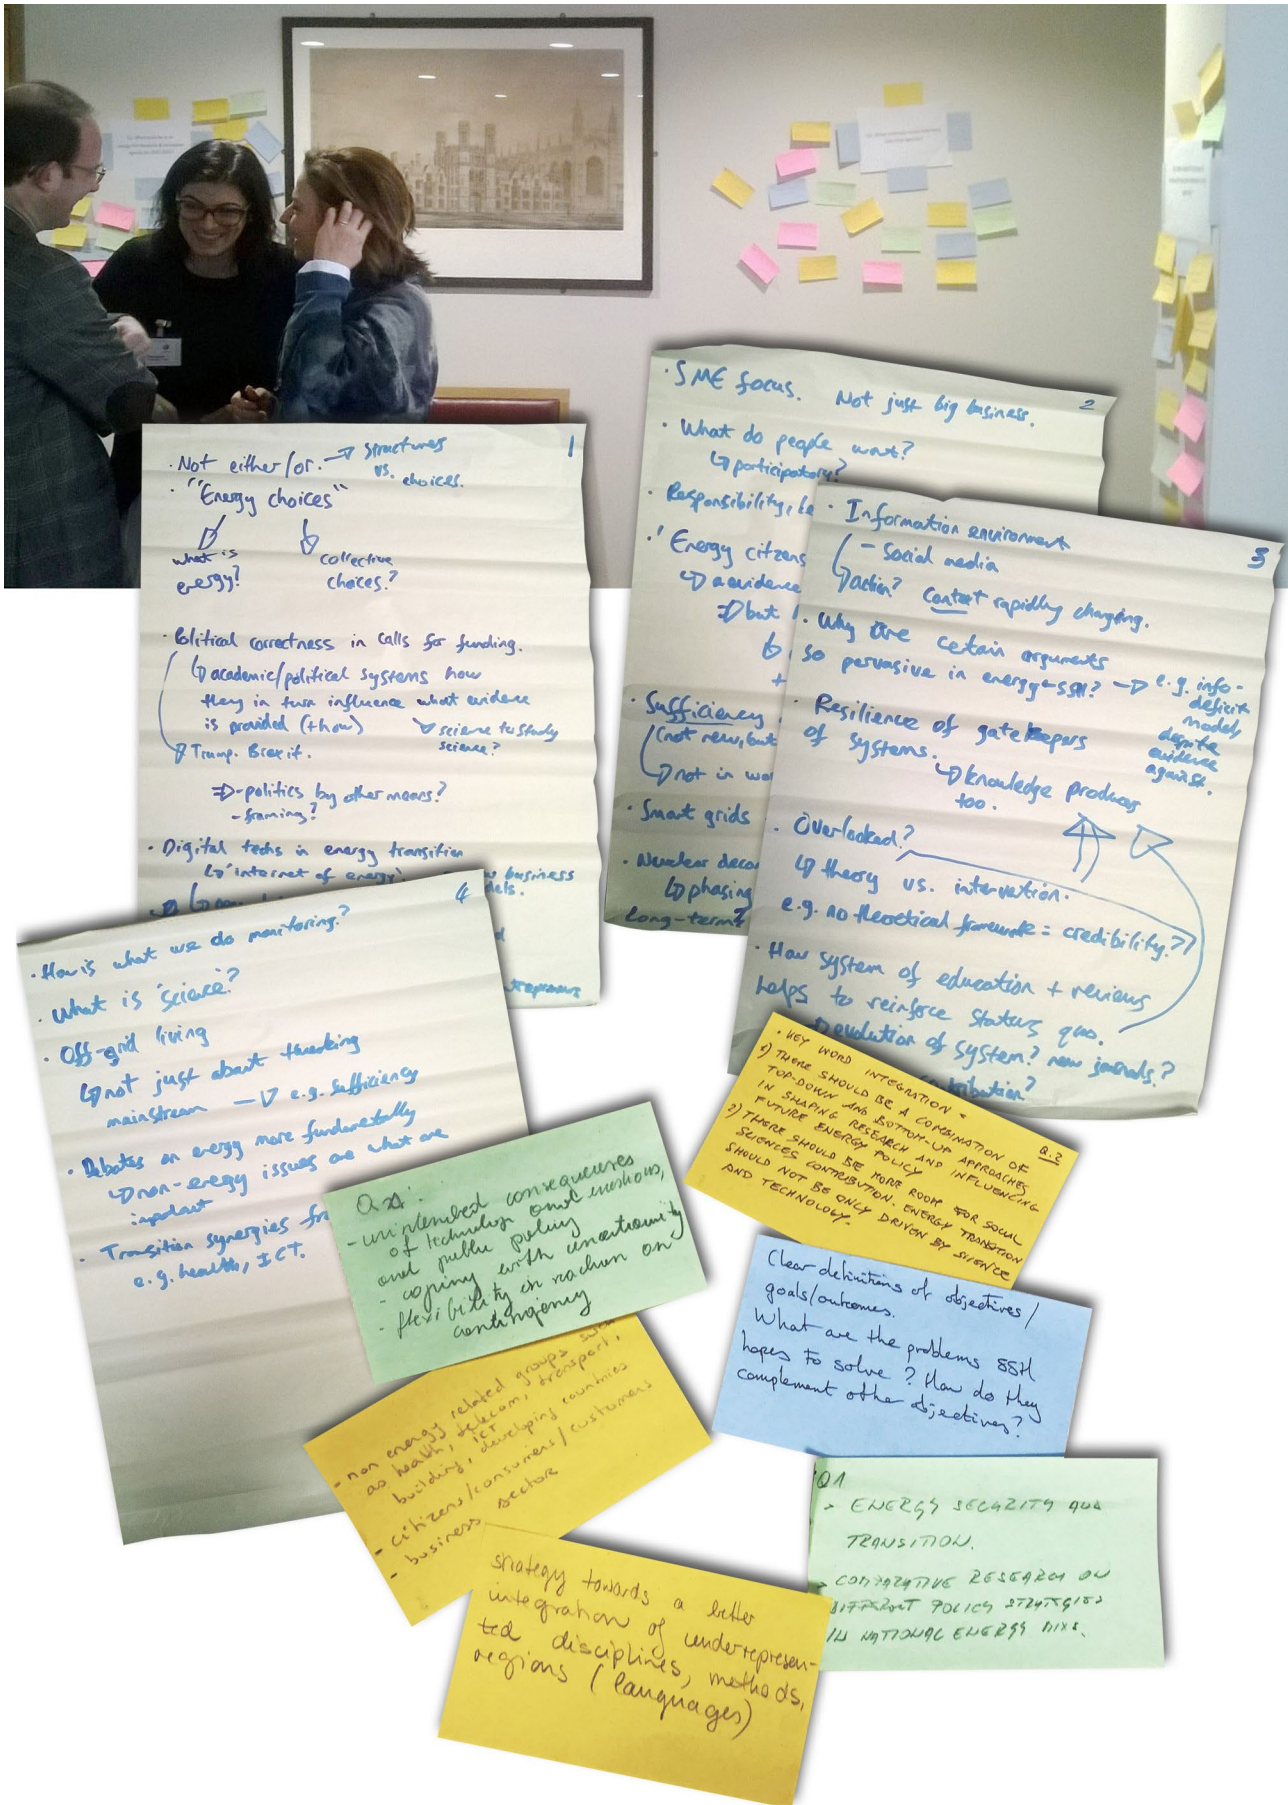 1
· Not either/or. → structures
vs. choices.
· "Energy choices"
what is
energy?
collective
choices?
· Political correctness in calls for funding.
↳ academic/political systems how
they in turn influence what evidence
is provided (+how)
↘ science to study
science?
Trump. Brexit.
⇒ - politics by other means?
- framing?
· Digital techs in energy transition
↳ 'internet of energy'
business
2
· SME focus. Not just big business.
· What do people want?
↳ participatory?
· Responsibility,
· 'Energy citizens
↳ evidence
⇒ but
+
· Sufficiency
(not new, but
↳ not in
· Smart grids
· Nuclear
↳ phasing
long-term?
3
· Information environment
- Social media
↳ action? Context rapidly changing.
· Why are certain arguments
so pervasive in energy-SSH? → e.g. info-
deficit
model,
despite
evidence
against.
· Resilience of gatekeepers
of systems.
↳ knowledge producers
too.
· Overlooked?
↳ theory vs. intervention.
e.g. no theoretical framework = credibility??
· How system of education + reviews
helps to reinforce status quo.
↳ evolution of system? new journals?
contribution?
4
· How is what we do monitoring?
· What is 'science'?
· Off-grid living
↳ not just about tweaking
mainstream → e.g. sufficiency
· Debates on energy more fundamentally
↳ non-energy issues are what are
important
· Transition synergies
e.g. health, ICT.
- unintended consequences
of technology
and public policy
- coping with uncertainty
- flexibility in reaction on
contingency
Q.2
· KEY WORD INTEGRATION =
1) THERE SHOULD BE A COMBINATION OF
TOP-DOWN AND BOTTOM-UP APPROACHES
IN SHAPING RESEARCH AND INFLUENCING
FUTURE ENERGY POLICY
2) THERE SHOULD BE MORE ROOM FOR SOCIAL
SCIENCES CONTRIBUTION. ENERGY TRANSITION
SHOULD NOT BE ONLY DRIVEN BY SCIENCE
AND TECHNOLOGY.
Clear definitions of objectives/
goals/outcomes.
What are the problems SSH
hopes to solve? How do they
complement other objectives?
- non energy related groups such
as health, telecom, transport,
ICT
building, developing countries
- citizens/consumers/customers
- business sector
Q1
- ENERGY SECURITY AND
TRANSITION.
- COMPARATIVE RESEARCH ON
DIFFERENT POLICY STRATEGIES
IN NATIONAL ENERGY MIXS.
strategy towards a better
integration of underrepresen-
ted disciplines, methods,
regions (languages)